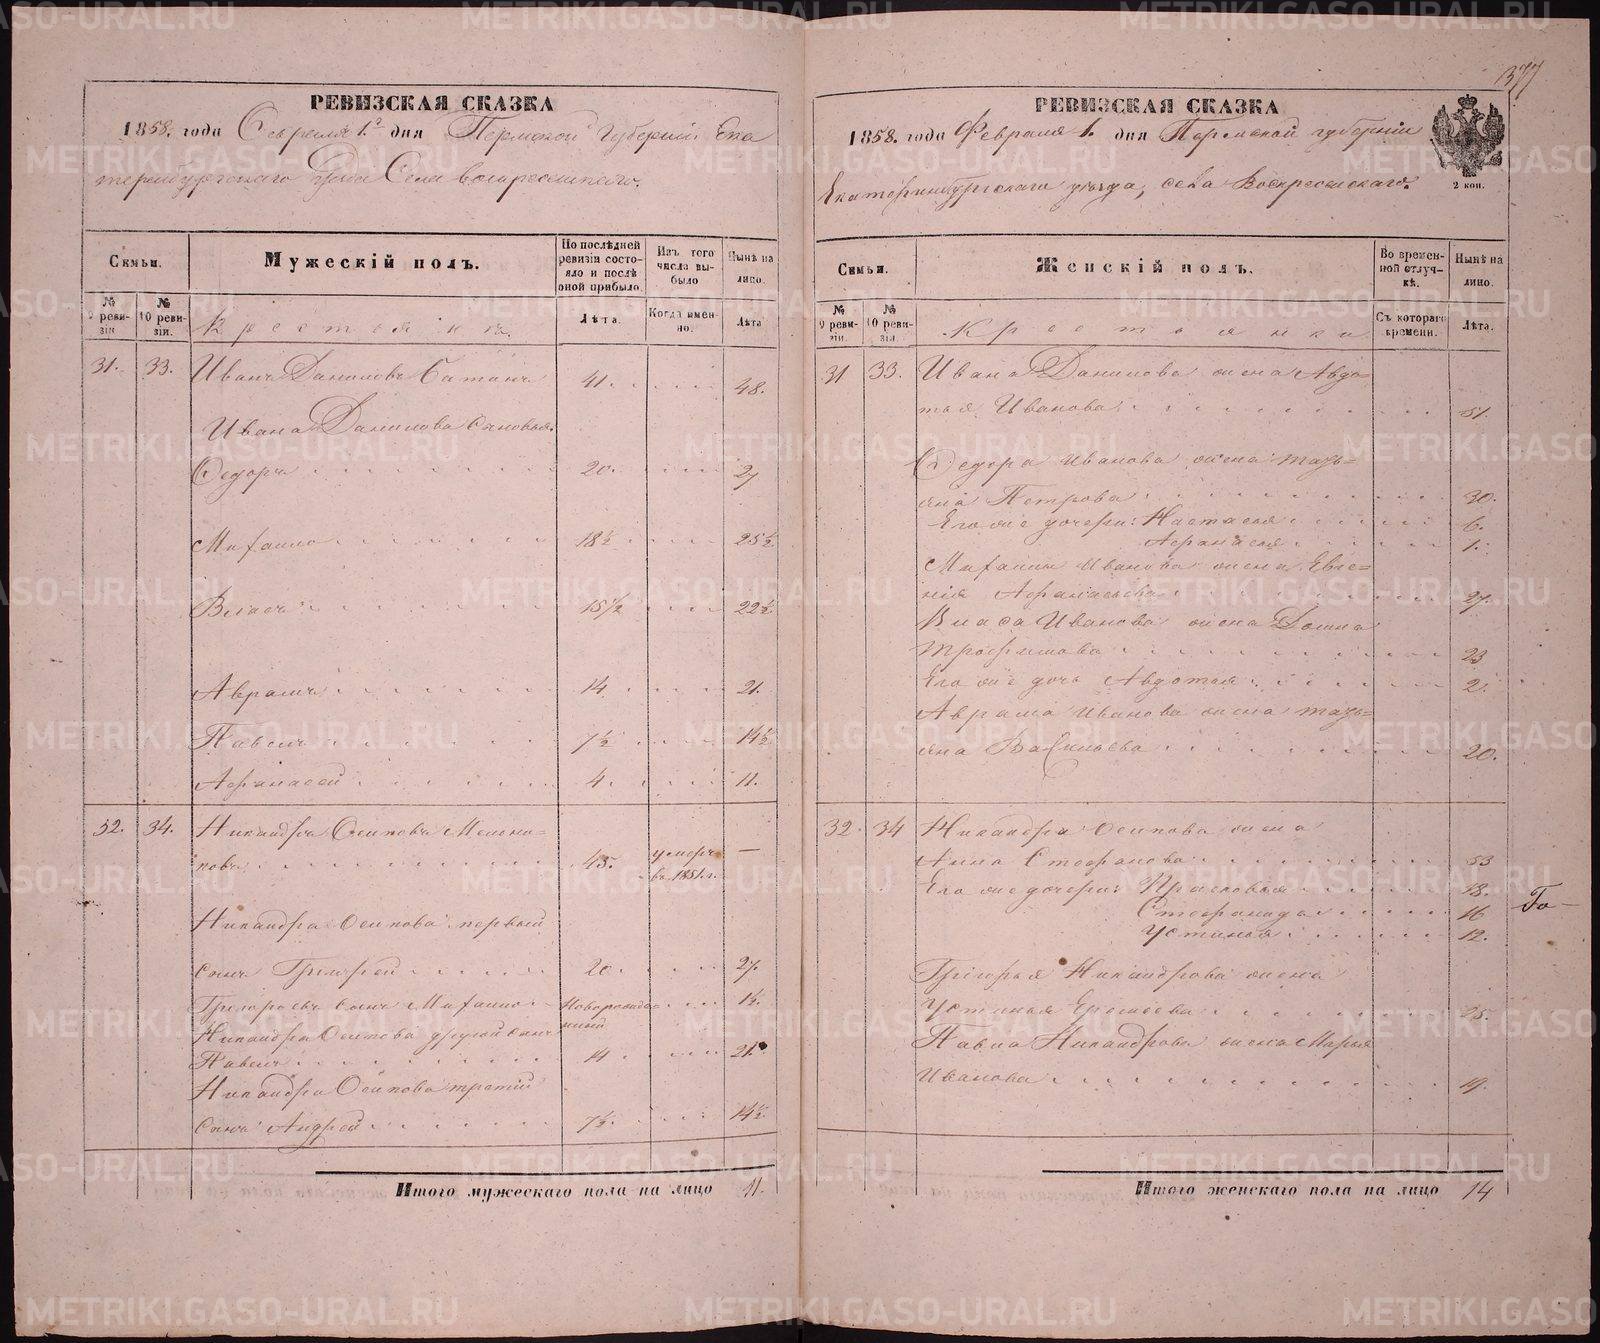 РЕВИЗСКАЯ СКАЗКА
1858. года Февраля 1го дня Пермской Губернiи Ека
теринбургскаго уѣзда Села Воскресенскаго.
Семьи.
№ 9 ревизiи.
№ 10 ревизiи.
Мужескiй полъ.
Крестьянинъ
По послѣдней ревизiи состояло и послѣ оной прибыло.
Лѣта.
Изъ того числа выбыло
Когда именно.
Нынѣ на лицо.
Лѣта
31. 33. Иванъ Даниловъ 41. 48.
Ивана Данилова сыновья.
Федоръ 20. 27
Михаило 18½ 25½
Власъ 15½ 22½
Аврамъ 14 21.
Павелъ 7½ 14½
Афанасей 4. 11.
32. 34. Никандръ Осиповъ
45. умеръ въ 1851. г. —
Никандра Осипова первый
сынъ Григорей 20. 27.
Григорьевъ сынъ Михаило новорожденный 1½.
Никандра Осипова другой сынъ
Павелъ 14 21.
Никандра Осипова третiй
сынъ Андрей 7½. 14½.
Итого мужескаго пола на лицо 11.
377
РЕВИЗСКАЯ СКАЗКА
1858. года Февраля 1. дня Пермской губернiи
Екатеринбургскаго уѣзда, села Воскресенскаго.
2 коп.
Семьи.
№ 9 ревизiи.
№ 10 ревизiи.
Женскiй полъ.
Крестьянки
Во временной отлучкѣ.
Съ котораго времени.
Нынѣ на лицо.
Лѣта.
31 33. Ивана Данилова жена Авдо=
тья Иванова 51.
Федора Иванова жена Тать=
яна Петрова 30.
Его же дочери: Настасья 6.
Афанасья 1.
Михаилы Иванова жена Евге=
нiя Афанасьева 27.
Власа Иванова жена Домна
Трофимова 23
Его же дочь Авдотья 2.
Аврама Иванова жена Тать=
яна Васильева 20.
32. 34 Никандра Осипова жена
Анна Стефанова 53
Его же дочери: Прасковья 18.
Стефанида 16
Устинья 12.
Григорья Никандрова жена
Устинья Ерофеева 25.
Павла Никандрова жена Марья
Иванова 19.
Го—
Итого женскаго пола на лицо 14
METRIKI.GASO-URAL.RU